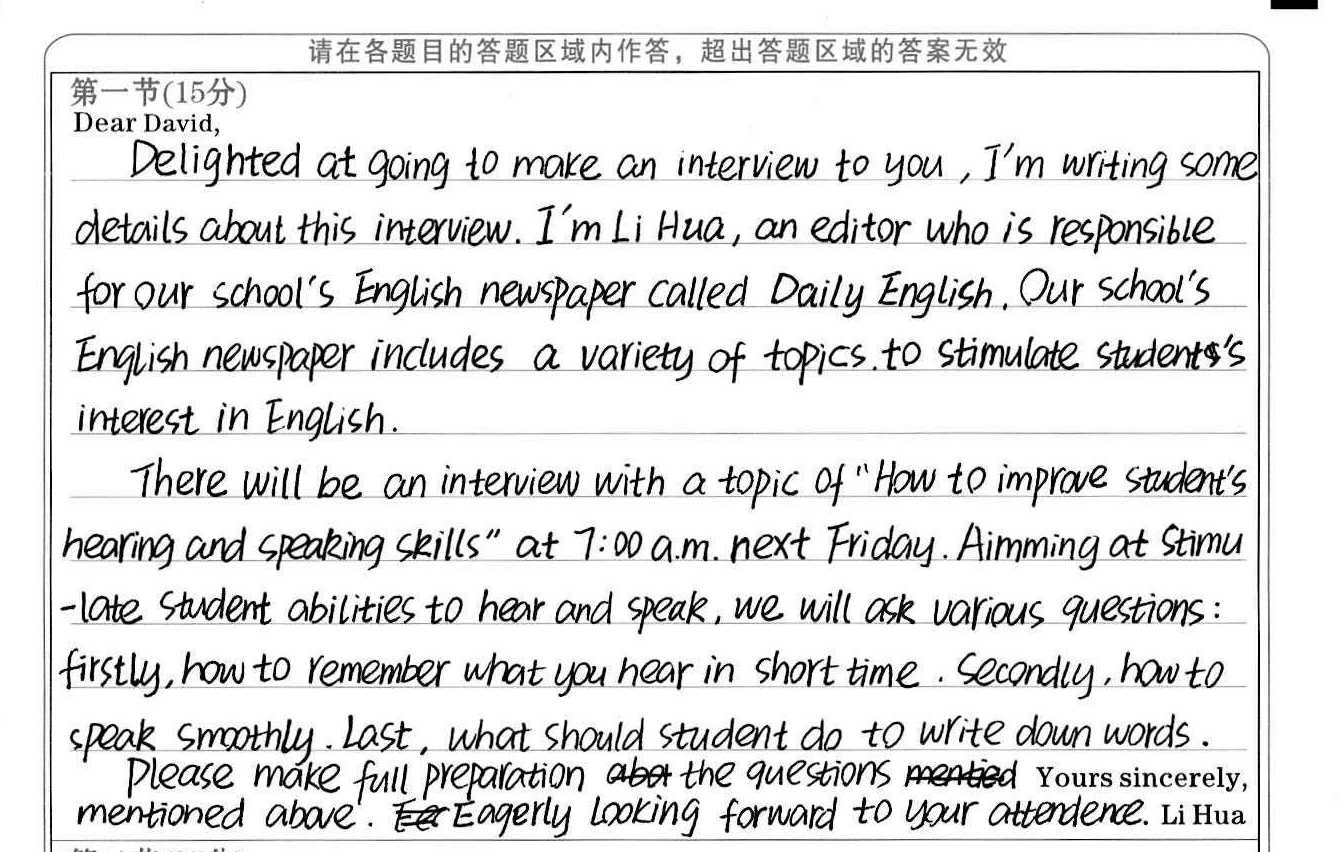 请在各题目的答题区域内作答，超出答题区域的答案无效
第一节(15分)
Dear David,
Delighted at going to make an interview to you, I'm writing some
details about this interview. I'm Li Hua, an editor who is responsible
for our school's English newspaper called Daily English. Our school's
English newspaper includes a variety of topics.to stimulate students's
interest in English.
There will be an interview with a topic of "How to improve student's
hearing and speaking skills" at 7:00 a.m. next Friday. Aimming at Stimu
-late student abilities to hear and speak, we will ask various questions:
firstly, how to remember what you hear in short time. Secondly, how to
speak smoothly. Last, what should student do to write down words.
Please make full preparation the questions Yours sincerely,
mentioned above. Eagerly looking forward to your attendence. Li Hua